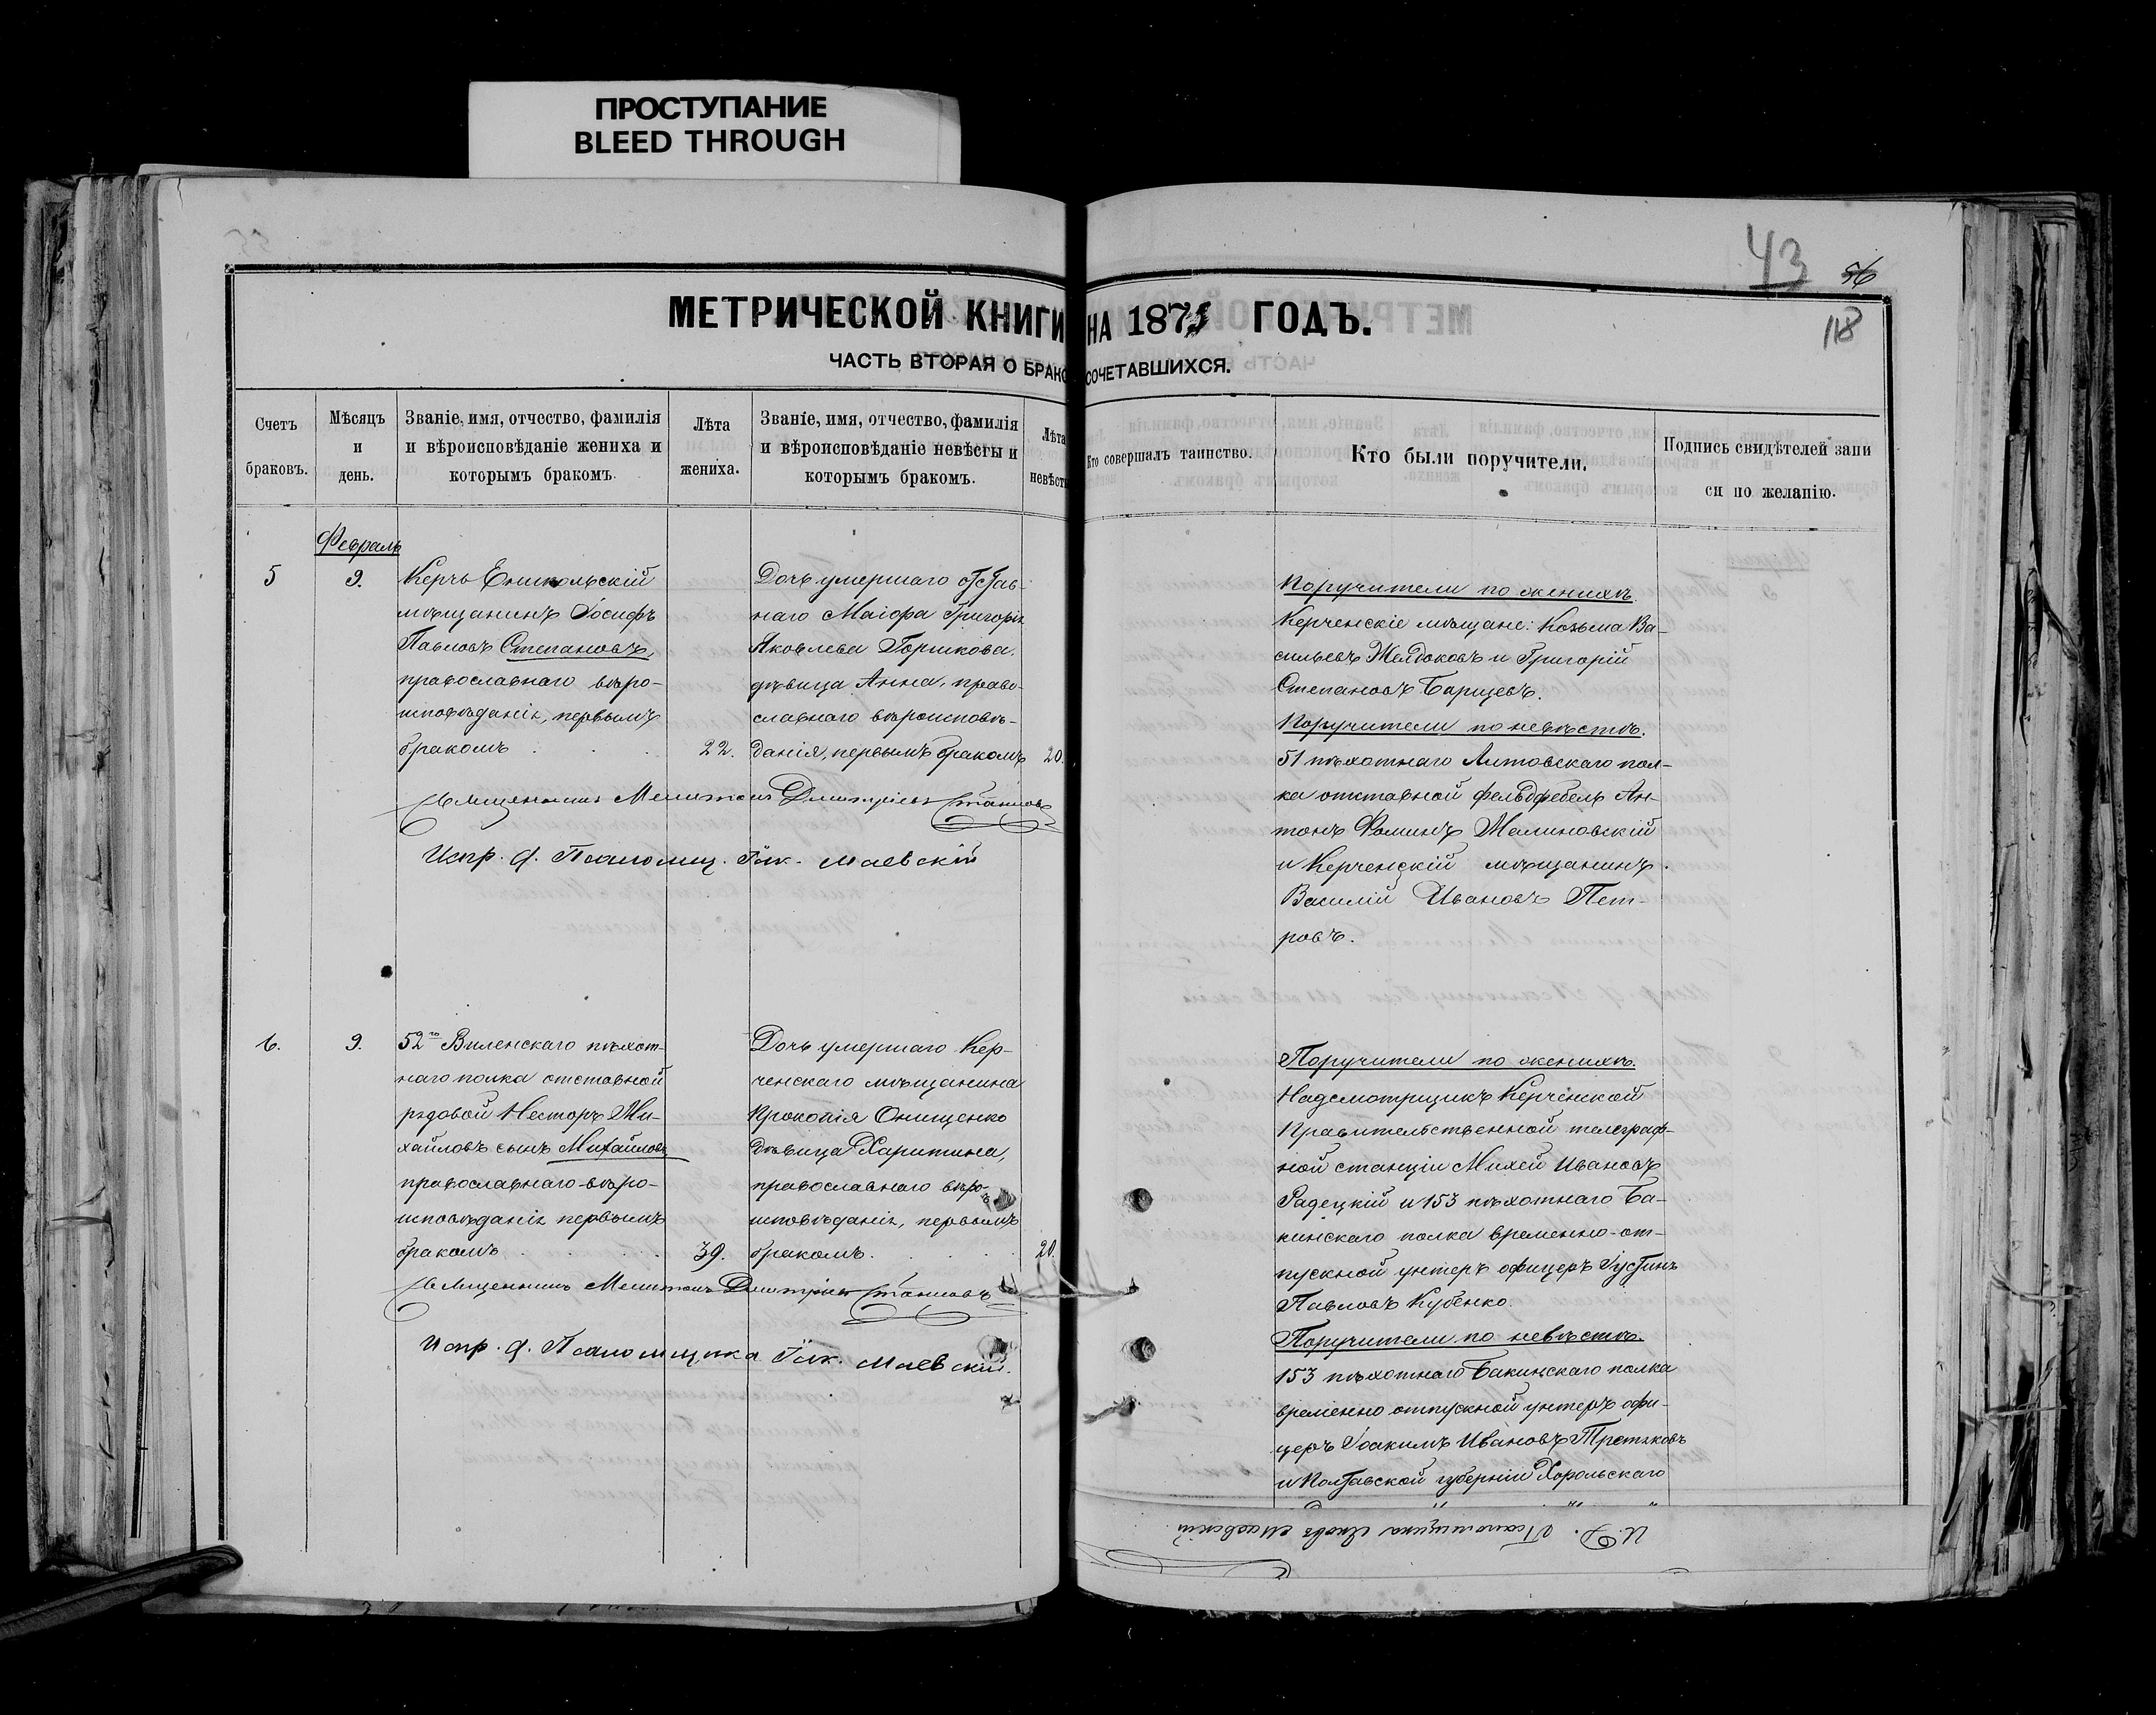 ПРОСТУПАНИЕ
BLEED THROUGH
43 56
118
МЕТРИЧЕСКОЙ КНИГИ НА 1875 ГОДЪ.
ЧАСТЬ ВТОРАЯ О БРАКОСОЧЕТАВШИХСЯ.
Счетъ
браковъ.
Мѣсяцъ
и
день.
Званіе, имя, отчество, фамилія
и вѣроисповѣданіе жениха и
которымъ бракомъ.
Лѣта
жениха.
Званіе, имя, отчество, фамилія
и вѣроисповѣданіе невѣсты и
которымъ бракомъ.
Лѣта
невѣсты
Кто совершалъ таинство.
Кто были поручители.
Подпись свидѣтелей запи
си по желанію.
Февраль
5
9.
Керчь Еникольскій
мѣщанинъ Іосифъ
Павловъ Степановъ,
православнаго вѣро-
исповѣданія, первымъ
бракомъ
22.
Дочь умершаго отстав-
наго Маіора Григорія
Яковлева Горшкова.
дѣвица Анна, право-
славнаго вѣроисповѣ-
данія, первымъ бракомъ
20.
Священникъ Мелитонъ Дмитріевъ
Испр. д. Псаломщ. Маевскій
Поручители по женихѣ.
Керченскіе мѣщане: Козьма Ва-
сильевъ Желдоковъ и Григорій
Степановъ Барцевъ.
Поручители по невѣстѣ.
51 пѣхотнаго Литовскаго пол-
ка отставной фельдфебель Ан-
тонъ Фоминъ Малиновскій
и Керченскій мѣщанинъ
Василій Ивановъ Пет-
ровъ.
6.
9.
52го Виленскаго пѣхот-
наго полка отставной
рядовой Несторъ Ми-
хайловъ сынъ Михайловъ
православнаго вѣро-
исповѣданія первымъ
бракомъ
39.
Дочь умершаго Кер-
ченскаго мѣщанина
Прокопія Онищенко
дѣвица Харитина,
православнаго вѣро-
исповѣданія, первымъ
бракомъ.
20.
Священникъ Мелитонъ Дмитріевъ
Испр. д. Псаломщика Маевскій.
Поручители по женихѣ.
Надсмотрщикъ Керченской
Правительственной телеграф-
ной станціи Михей Ивановъ
Радецкій и 153 пѣхотнаго Ба-
кинскаго полка временно-от-
пускной унтеръ офицеръ Іустинъ
Павловъ Кубенко.
Поручители по невѣстѣ.
153 пѣхотнаго Бакинскаго полка
временно отпускной унтеръ офи-
церъ Іоакимъ Ивановъ Третяковъ
и Полтавской губерніи Хорольскаго
И. Д. Псаломщика Маевскій